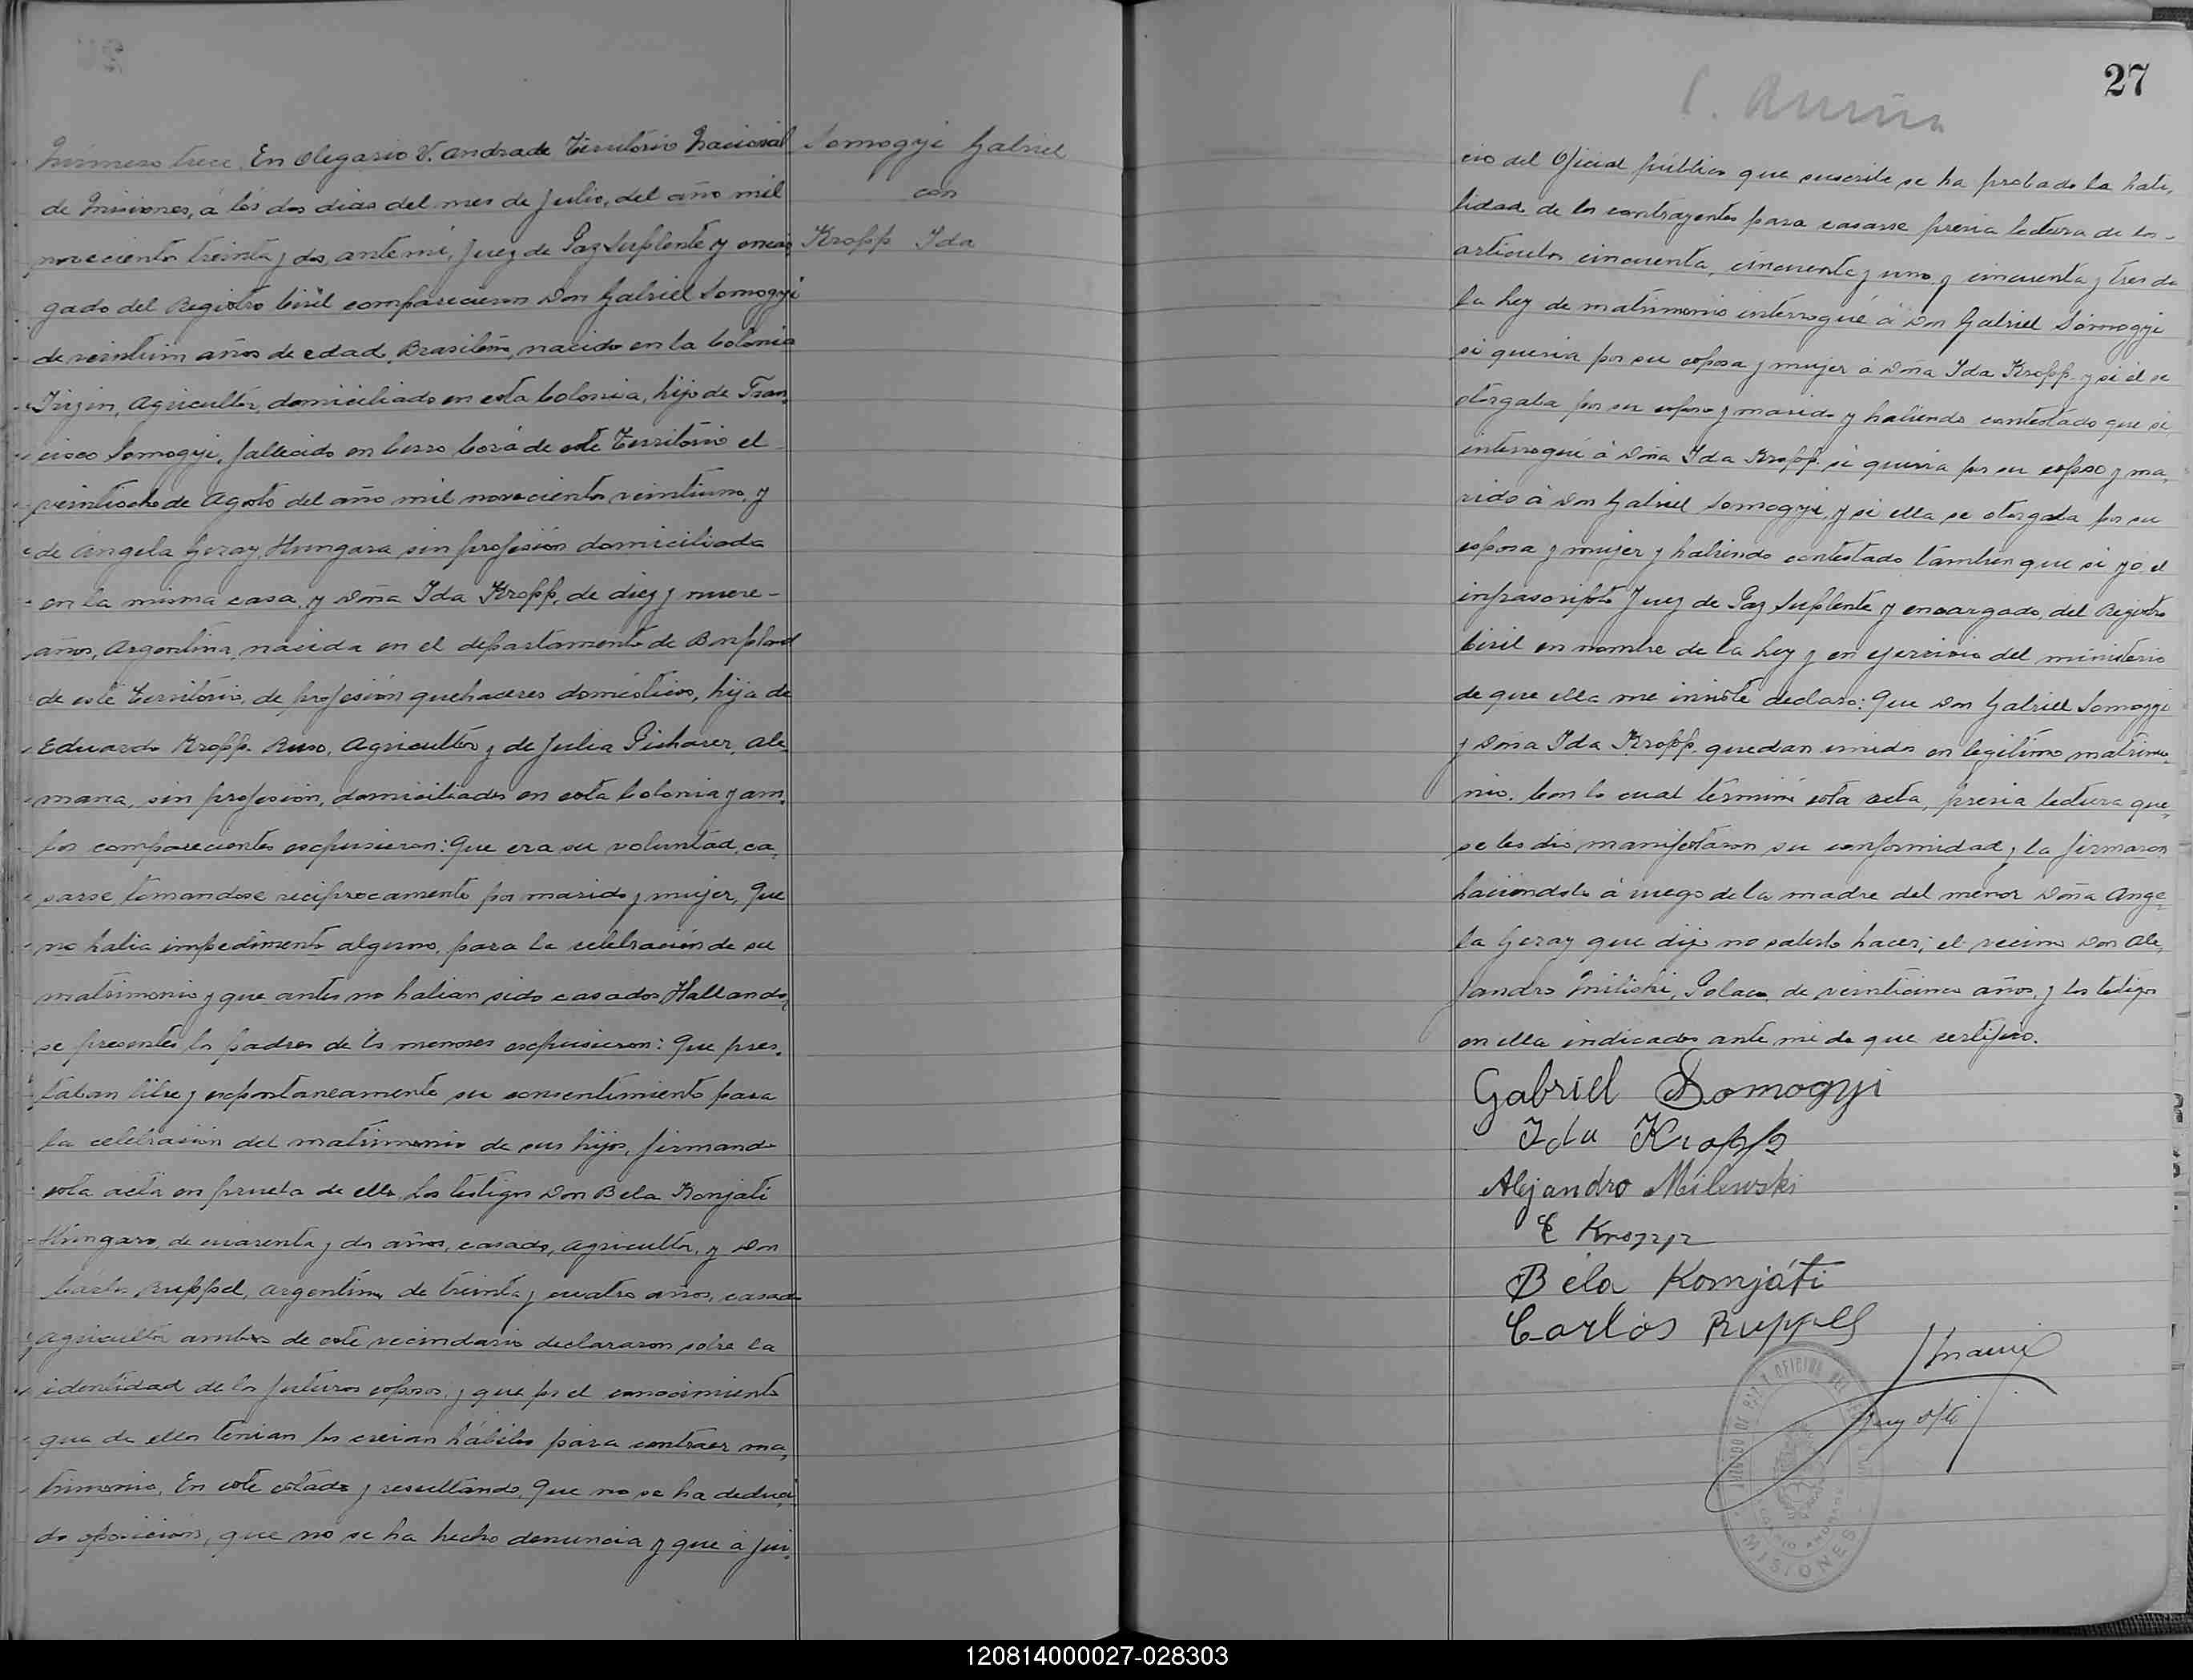 27
Número trece. En Olegario V. Andrade Territorio Nacional
de Misiones, á los dos dias del mes de Julio, del año mil
novecientos treinta y dos, ante mi, Juez de Paz Suplente y encar,
gado del Registro Civil comparecieron Don Gabriel Somogyi
de veintiun años de edad, Brasileño, nacido en la Colonia
Agricultor, domiciliado en esta Colonia, hijo de Fran,
cisco Somogyi, fallecido en Cerro Corá de este Territorio el
veintiocho de Agosto del año mil novecientos veintiuno, y
de Angela Geray, Hungara sin profesión domiciliada
en la misma casa, y Doña Ida Kropp, de diez y nueve-
años, Argentina, nacida en el departamento de Bonpland
de este Territorio, de profesión quehaceres domésticos, hija de
Eduardo Kropp. Ruso, Agricultor y de Julia Ale,
mana, sin profesión, domiciliados en esta Colonia y am,
bos comparecientes expusieron: Que era su voluntad, ca,
sarse, tomandose reciprocamente por marido y mujer, Que
no habia impedimento alguno, para la celebración de su
matrimonio y que antes no habian sido casados Hallando,
se presentes los padres de los menores expusieron: Que pres,
taban libre y expontaneamente su consentimiento para
la celebración del matrimonio de sus hijos, firmando
esta acta en prueba de ello. Los testigos Don Bela Konjati
Hungaro, de cuarenta y dos años, casado, agricultor, y Don
Carlos Ruppel, argentino, de treinta y cuatro años, casado
agricultor ambos de este vecindario declararon sobre la
identidad de los futuros esposos, y que por el conocimiento
que de ellos tenian los creian hábiles para contraer ma,
trimonio, En este estado y resultando, Que no se ha deduci,
do oposición, que no se ha hecho denuncia y que á jui,
Somogyi Gabriel
con
Kropp Ida
cio del Oficial público que suscribe se ha probado la habi,
lidad de los contrayentes para casarse previa lectura de los-
articulos cincuenta, cincuenta y uno, y cincuenta y tres de
la Ley de matrimonio interrogué á Don Gabriel Somogyi
si queria por su esposa y mujer á Doña Ida Kropp y si él se
otorgaba por su esposo y marido y habiendo contestado que si,
interrogué á Doña Ida Kropp. si queria por su esposo y ma,
rido á Don Gabriel Somogyi, y si ella se otorgaba por su
esposa y mujer y habiendo contestado tambien que si yo el
infrascripto Juez de Paz Suplente y encargado, del Registro
Civil en nombre de la Ley y en ejercicio del ministerio
de que ella me inviste declaro: Que Don Gabriel Somogyi
y Doña Ida Kropp, quedan unidos en legitimo matrimo,
nio. Con lo cual terminé esta acta, previa lectura que,
se les dió, manifestaron su conformidad y la firmaron
haciendolo á ruego de la madre del menor Doña Ange,
la Geray que dijo no saberlo hacer, el vecino Don Ale,
jandro Miliski, Polaco, de veinticinco años, y los testigos
en ella indicados ante mi de que certifico.
Gabriel Somogyi
Ida Kropp
Alejandro Milewski
E Kropp
Béla Komjáti
Carlos Ruppell
Juez
JUZGADO DE PAZ Y OFICINA DEL
MISIONES
120814000027-028303